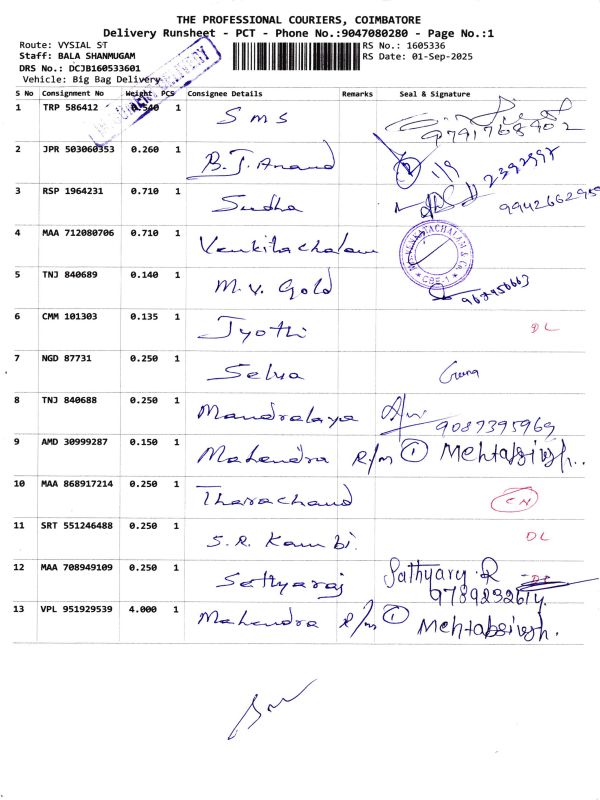 THE PROFESSIONAL COURIERS, COIMBATORE
Delivery Runsheet - PCT - Phone No.:9047080280 - Page No.:1
Route: VYSIAL ST
RS No.: 1605336
Staff: BALA SHANMUGAM
RS Date: 01-Sep-2025
DRS No.: DCJB160533601
Vehicle: Big Bag Delivery
S No Consignment No Weight PCS Consignee Details Remarks Seal & Signature
1 TRP 586412 0.540 1 SMS 9791768402
2 JPR 503060353 0.260 1 B.J. Anand 1/9 2392997
3 RSP 1964231 0.710 1 Sudha 9942662959
4 MAA 712080706 0.710 1 Venkitachalam
VENKATACHALAM & Co. CBE-1
5 TNJ 840689 0.140 1 M.V. Gold
6 CMM 101303 0.135 1 Jyothi DL
7 NGD 87731 0.250 1 Selva Guna
8 TNJ 840688 0.250 1 Mandralaya 9087395969
9 AMD 30999287 0.150 1 Mahendra R/m 1 Mehtabsingh..
10 MAA 868917214 0.250 1 Tharachand CN
11 SRT 551246488 0.250 1 S.R. Kambi. DL
12 MAA 708949109 0.250 1 Sathyaraj Sathyaraj.R DL
9789232614.
13 VPL 951929539 4.000 1 Mahendra R/m 1 Mehtabsingh.